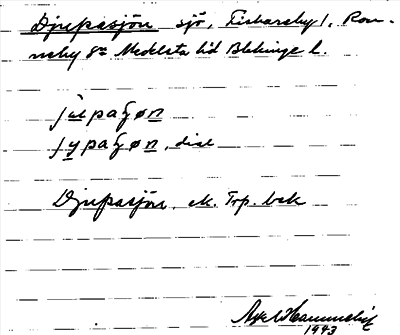 Djupasjön sjö, Fiskarsby 1, Ron-
neby sn Medelsta hd Blekinge l.
jʉpaʃøn
jypaʃøn, dial
Djupasjön, ek. Trp. bak
1943